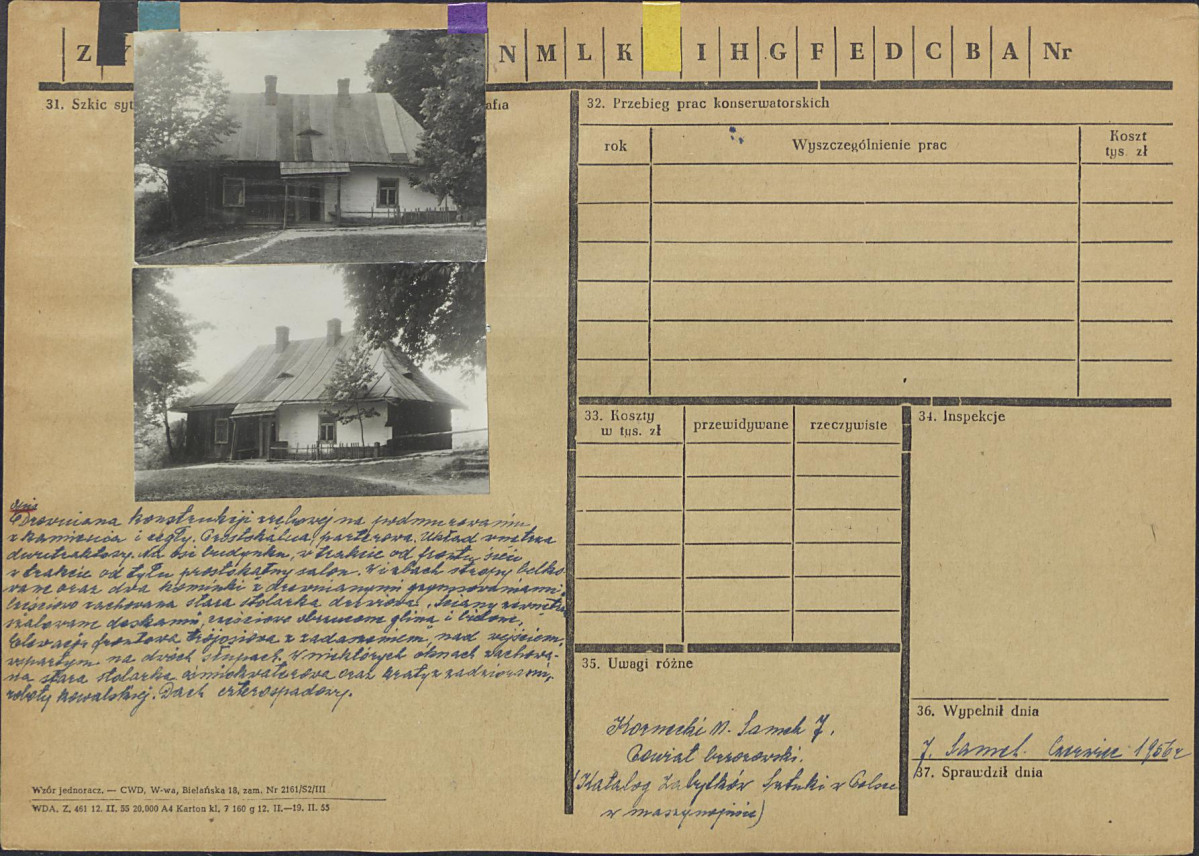 Z Y N M L K I H G F E D C B A Nr
31. Szkic syt afia
32. Przebieg prac konserwatorskich
rok Wyszczególnienie prac Koszt
tys. zł
33. Koszty
w tys. zł przewidywane rzeczywiste
34. Inspekcje
Drewniana konstrukcji zrębowej na podmurowaniu
z kamienia i cegły. Prostokątna, parterowa. Układ wnętrza
dwutraktowy. Na osi budynku, w trakcie od frontu sień,
w trakcie od tyłu prostokątny salon. W izbach stropy belko-
wane oraz dwa kominki z drewnianymi gzymsowaniami,
częściowo zachowana stara stolarka drzwiowa. Ściany zewnątrz
szalowane deskami, częściowo obrzucone gliną i bielone.
Elewacja frontowa trójosiowa z zadaszeniem, nad wejściem,
wspartym na dwóch słupach. W niektórych oknach zachowa-
na stara stolarka ośmiokwaterowa oraz kraty z zadziorami,
roboty kowalskiej. Dach czterospadowy.
35. Uwagi różne
Kornecki M. Samek J.
Powiat brzozowski.
(Katalog Zabytków Sztuki w Polsce
w maszynopisie)
36. Wypełnił dnia
J. Samek. Czerwiec 1956 r
37. Sprawdził dnia
Wzór jednoracz. — CWD, W-wa, Bielańska 18, zam. Nr 2161/S2/III
WDA. Z. 461 12. II. 55 20.000 A4 Karton kl. 7 160 g 12. II.—19. II. 55